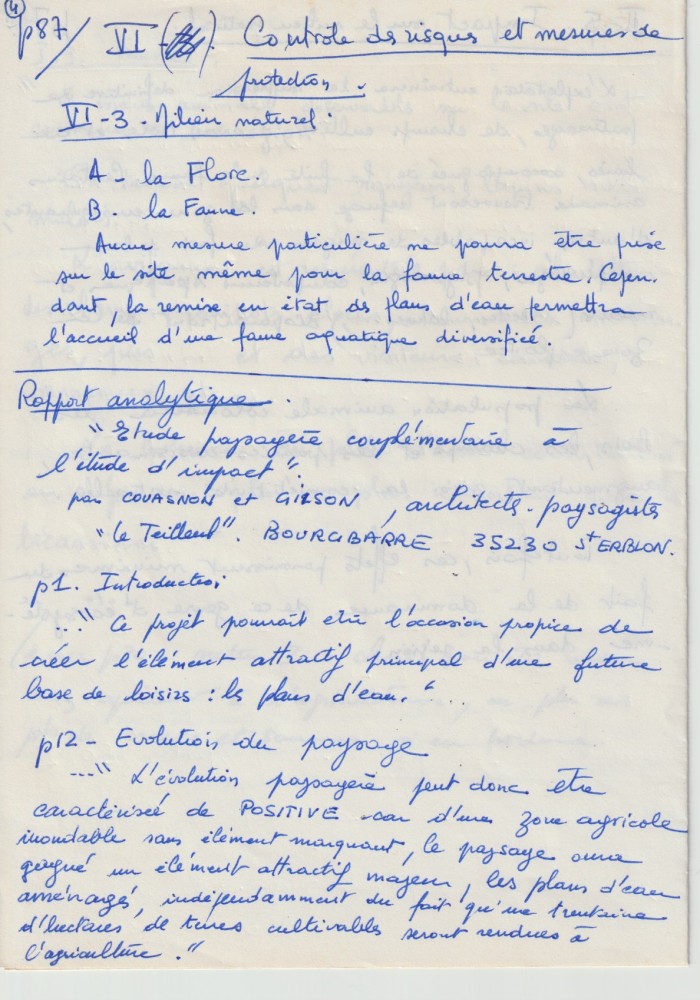 4
p87/ VI - . Contrôle des risques et mesures de
protection.
VI-3 - Milieu naturel.
A - la Flore.
B. la Faune.
Aucune mesure particulière ne pourra être prise
sur le site même pour la faune terrestre. Cepen-
dant, la remise en état des plans d'eau permettra
l'accueil d'une faune aquatique diversifiée.
Rapport analytique.
"Etude paysagère complémentaire à
l'étude d'impact".
par COUASNON et GILSON, architectes-paysagistes
"le Teilleul". BOURGBARRE 35230 St ERBLON.
p1. Introduction
..." Ce projet pourrait être l'occasion propice de
créer l'élément attractif principal d'une future
base de loisirs : les plans d'eau."...
p12 - Evolution du paysage
..." L'évolution paysagère peut donc être
caractérisée de POSITIVE car d'une zone agricole
inondable sans élément marquant, le paysage aura
gagné un élément attractif majeur, les plans d'eau
aménagés, indépendamment du fait qu'une trentaine
d'hectares de terres cultivables seront rendues à
l'agriculture."